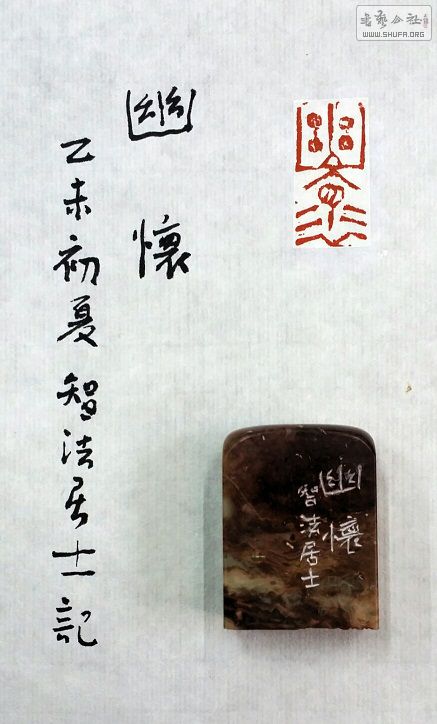 書藝公社
WWW.SHUFA.ORG
幽懷
幽懷
乙未初夏智法居士記
幽懷
智法居士